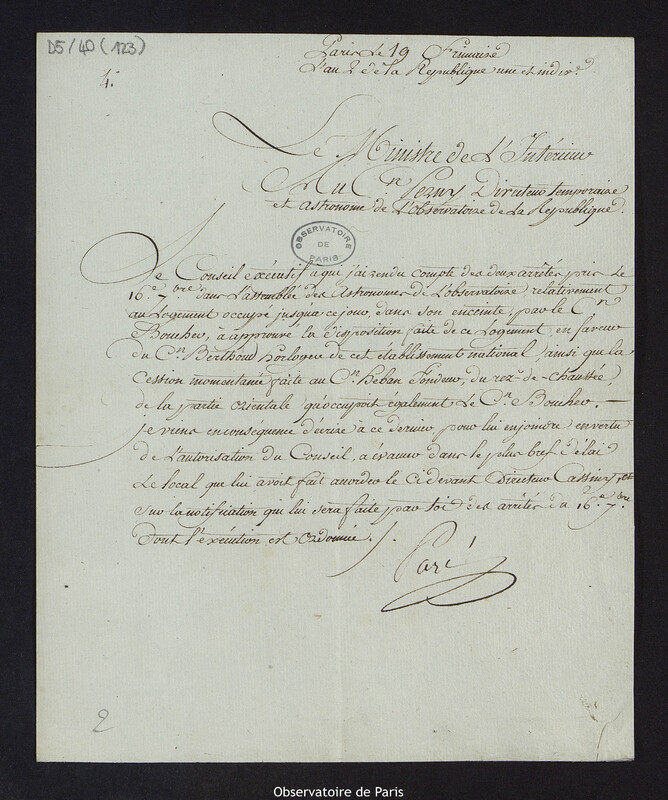 D5/40 (123)
4.
Paris Le 19 Frimaire
L'an 2e de la Republique une et indive.
Le Ministre de L'Intérieur
Au Cn Perny Directeur temporaire
et Astronome de L'observatoire de La Republique.
OBSERVATOIRE DE PARIS
Le Conseil exécutif à qui j'ai rendu compte des deux arrêtés pris Le
16e 7bre dans L'assemblée des Astronomes de L'observatoire, relativement
au Logement occupé jusqu'a ce jour, dans son enceinte, par le Cn
Boucher, à approuvé la disposition faite de ce Logement, en faveur
du Cn Berthoud horloger de cet etablissement national, ainsi que la
Cession momentanée faite au Cn heban fondeur, du rez-de-chaussée
de la partie orientale qu'occupoit également Le Cn Boucher.
je viens en conséquence d'écrire à ce dernier pour lui enjoindre en vertu
de L'autorisation du Conseil, a évacuer dans le plus bref délai
Le local que lui avoit fait accorder le cidevant Directeur Cassiny, et
sur la notification qui lui sera faite par toi des arrêtés du 16e 7bre
Dont l'exécution est ordonnée.
Paré
2
Observatoire de Paris